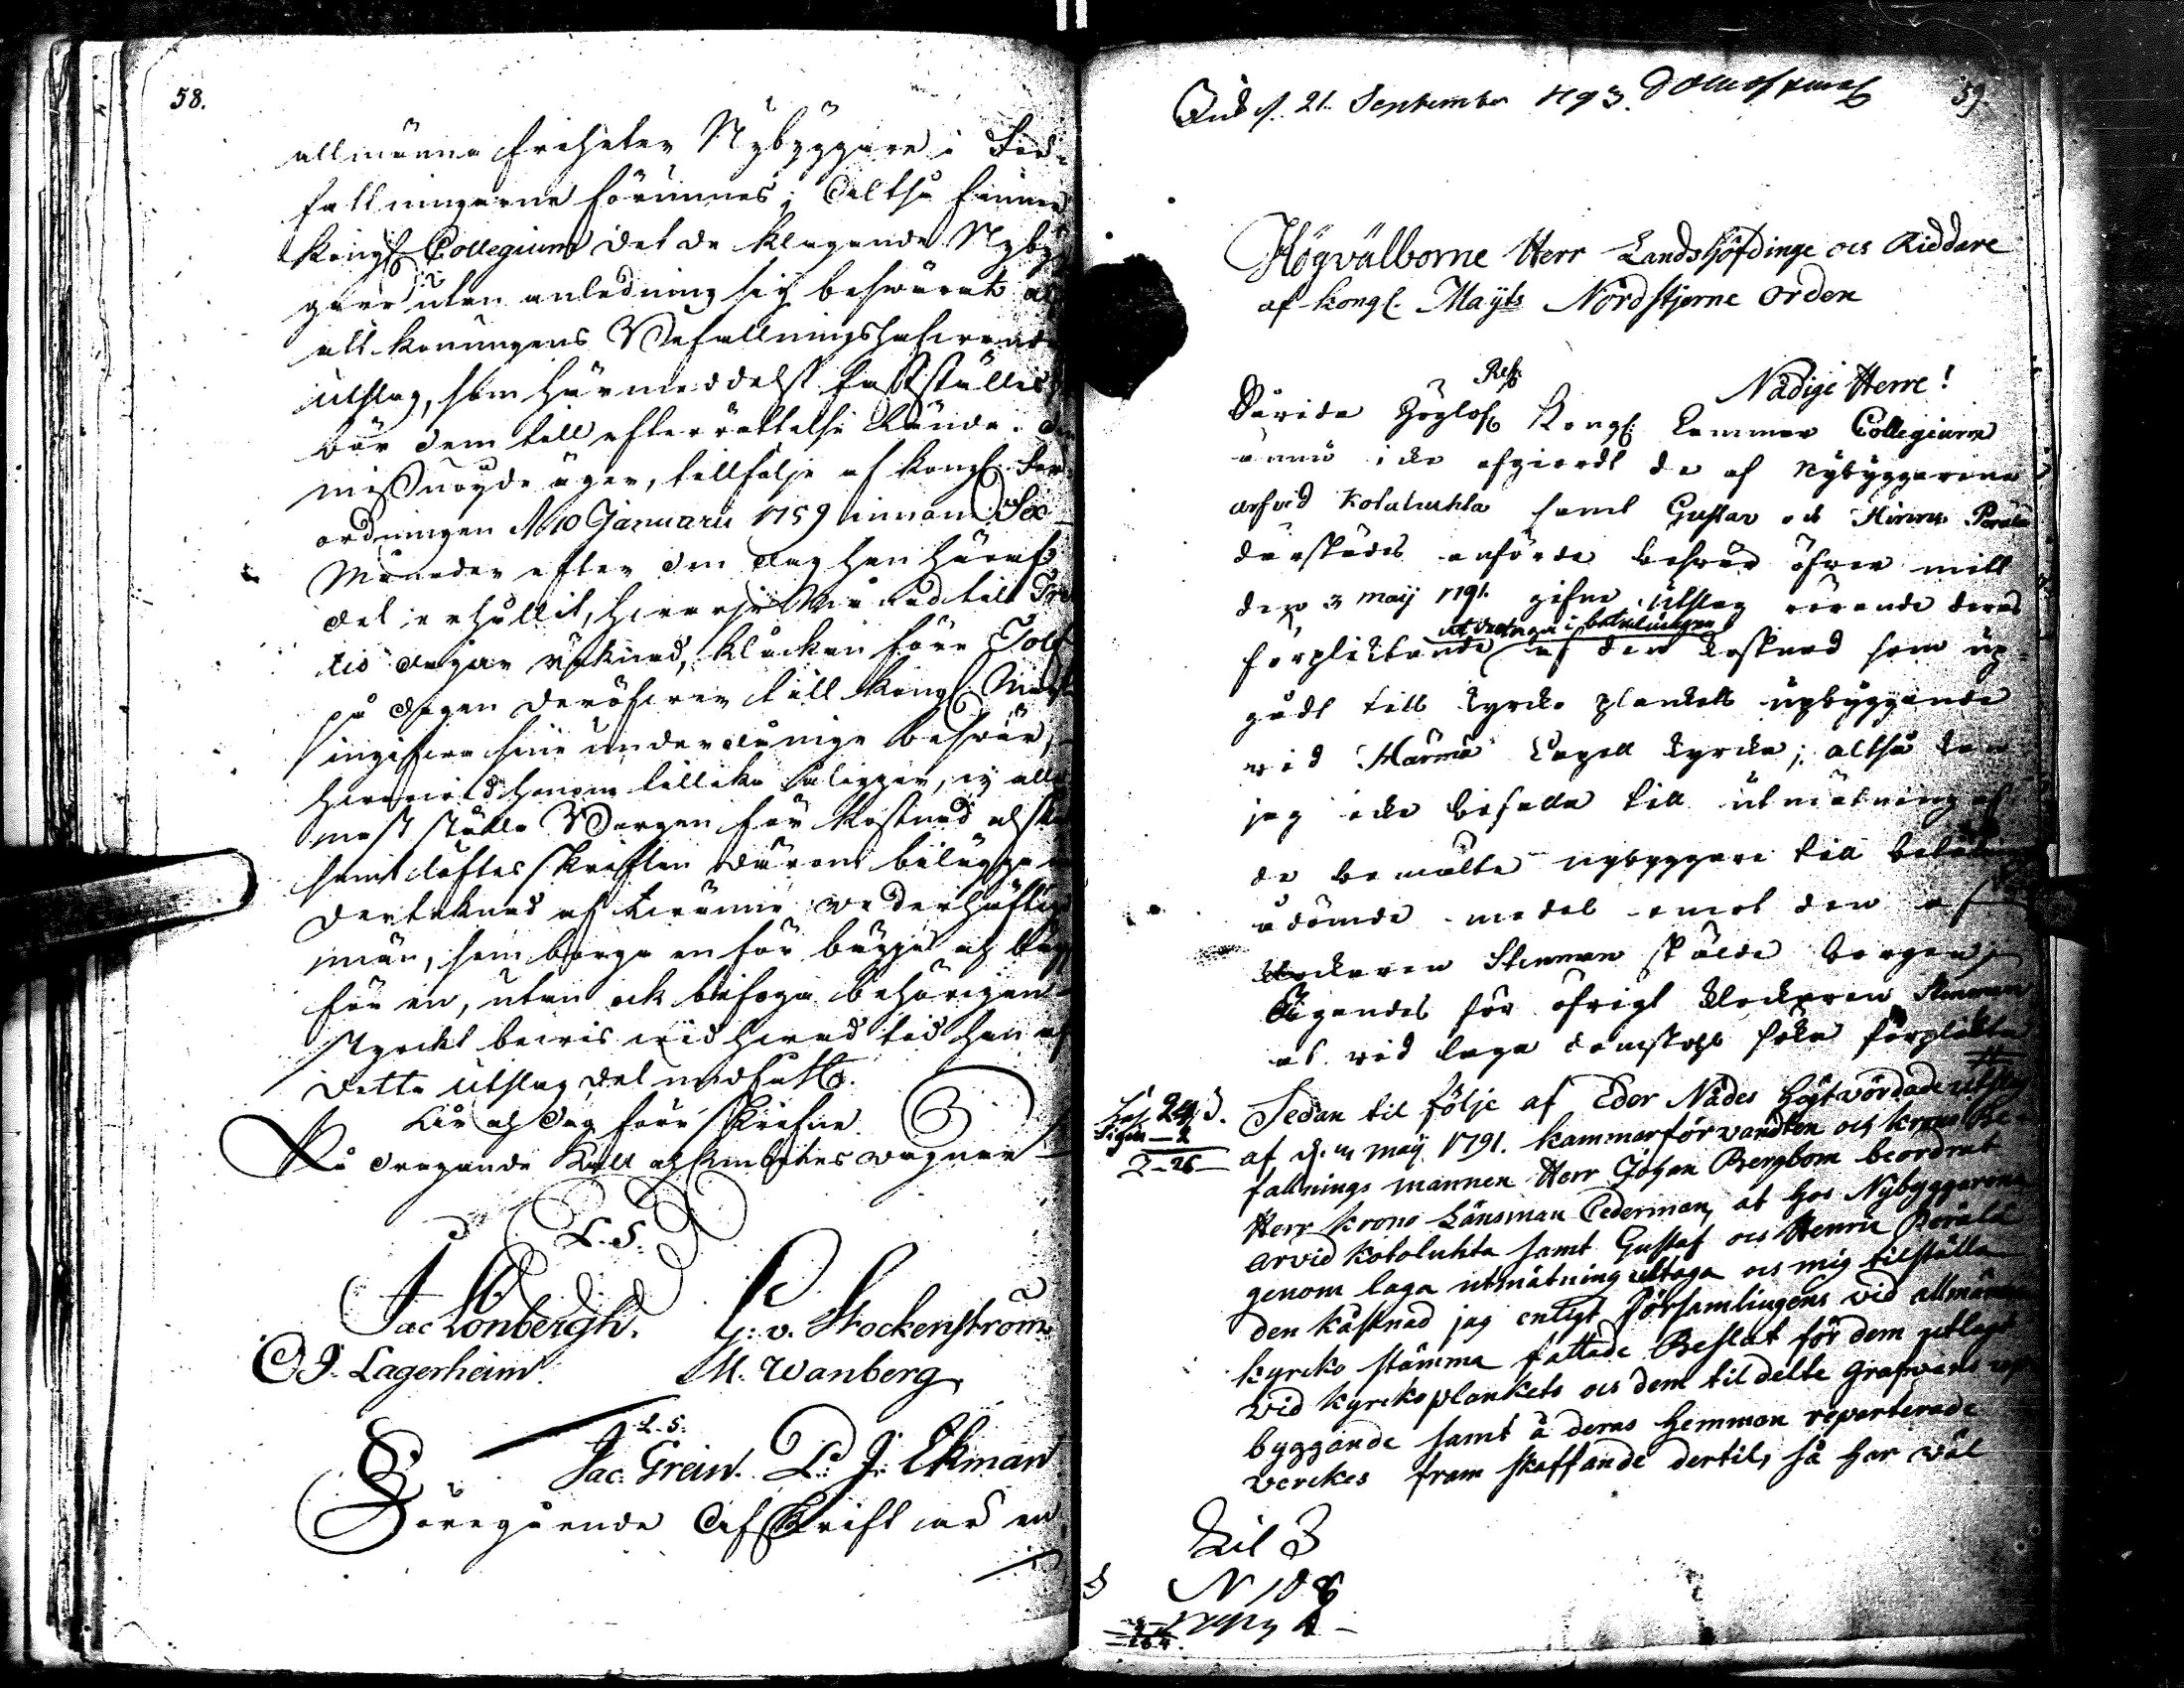 58.
allmänna friheter Nybyggare i Lax-
fallningarne förunnes; altså finner
Kongl. Collegium det de klagande Nybyg
gare utan anledning sig beswärat
att Konungens Befallningshafwandes
Utslag, som härmedelst fastställes
bör dem till efterrättelse lända.
missnöyde äger, tillfölje af Kongl. För
ordningen d 10 Januarii 1759 innom Sex
Månader efter den dag han häraf
del erhållit, hwarje Månad till Tret
tio dagar räknad, klåckan före Tolf
på dagen deröfwer till Kongl. Maj:t
ingifwa sine underdånige beswär,
hwarwid honom tillika åligger, ej alle
nast ställa Borgen för kostnad och
samt löftesskriften därom bilägga
dertecknad af twänne wederhäftige
män, som borga en för bägge och bägge
för en, utan ock bifoga behörigen
styrckt bewis wid hwad tid han af
detta Utslag del undfått.
År och dag förr skrefne
På dragande Kall och Embetes wägnar
L.S.
Jac Lönbergh. G: v. Stockenström
C J. Lagerheim M. Wanberg
L.S.
Jac. Grein. L: J: Ekman
Föregående Afskrift war en
Ind d. 21. September 1793. 59
Högvälborne Herr Landshöfdinge och Riddare
af Kongl. Maijts Nordstjerne Orden
Nådige Herre!
Res:
Såvida Höglofl. Kongl. Cammar Collegium
ännu icke afgiordt de af Nybyggarena
arfvid Kotaluhta samt Gustav och Hinric Perälä
därstädes anförde beswär öfver mitt
den 3 maij 1791. gifne Utslag rörande deras
utdraga i betalningen
förplicktande af den kostnad som up
gådt till kyrcko planketts upbyggande
wid Härmä Capell kyrcka; altså kan
jag icke befalla till utmätning af
de bemälte nybyggare till betalning
ådömde medel emot den af
klockaren Stenman stälde borgen;
Ägandes för öfrigt klockaren Stenman
at vid laga domstohl söka förplickta
Lös. 24 s.
Sigill — 2
2-26
Sedan til följe af Eder Nådes Högtvördade utslag
af d. 3 maij 1791. kammarförvandten och krono Be-
fallnings mannen Herr Johan Bergbom beordrat
Herr krono Länsman Cederman, at hos Nybyggarena
Arvid Kotoluhta samt Gustaf och Henric Perälä
genom laga utmätning uttaga och mig tilställa
den kåstnad jag enligt Församlingens vid allmänna
kyrcko stämma fattade Beslut för dem utlagt
vid kyrckoplankets och dem til delte grafvards up
byggande samt å deras Hemman reparterade
verckes fram skaffande dertil, så har väl
Bil 3
N 108